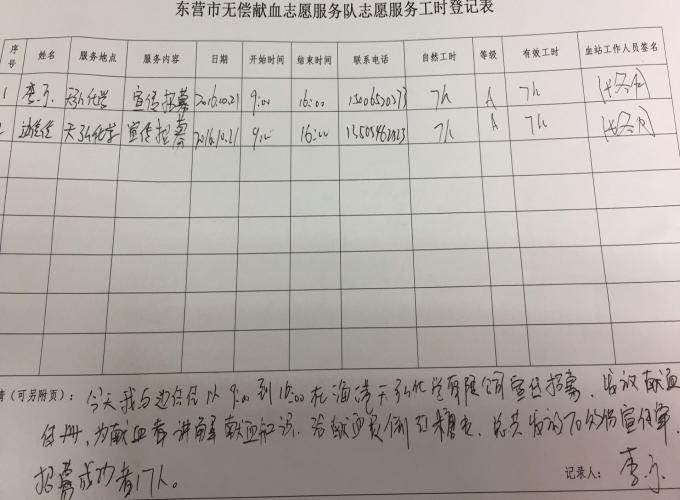 东营市无偿献血志愿服务队志愿服务工时登记表
序号 姓名 服务地点 服务内容 日期 开始时间 结束时间 联系电话 自然工时 等级 有效工时 血站工作人员签名
1 李京 天弘化学 宣传招募 2016.10.21 9:00 16:00 7h A 7h
2 边佳佳 天弘化学 宣传招募 2016.10.21 9:00 16:00 13505462023 7h A 7h
情(可另附页): 今天我与边佳佳从9:00到16:00在海港天弘化学有限公司宣传招募、发放献血
宣传册,为献血者讲解献血知识、给献血员倒红糖水、总共发放70余份宣传单,
招募成功者17人。
记录人: 李京